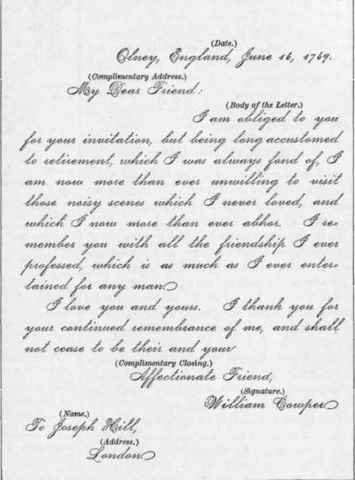 (Date.)
Olney, England, June 16, 1769.
(Complimentary Address.)
My Dear Friend:
(Body of the Letter.)
I am obliged to you
for your invitation, but being long accustomed
to retirement, which I was always fond of, I
am now more than ever unwilling to visit
those noisy scenes which I never loved, and
which I now more than ever abhor. I re-
member you with all the friendship I ever
professed, which is as much as I ever enter-
tained for any man.
I love you and yours. I thank you for
your continued remembrance of me, and shall
not cease to be their and your
(Complimentary Closing.)
Affectionate Friend,
(Signature.)
William Cowper
(Name.)
To Joseph Hill,
(Address.)
London